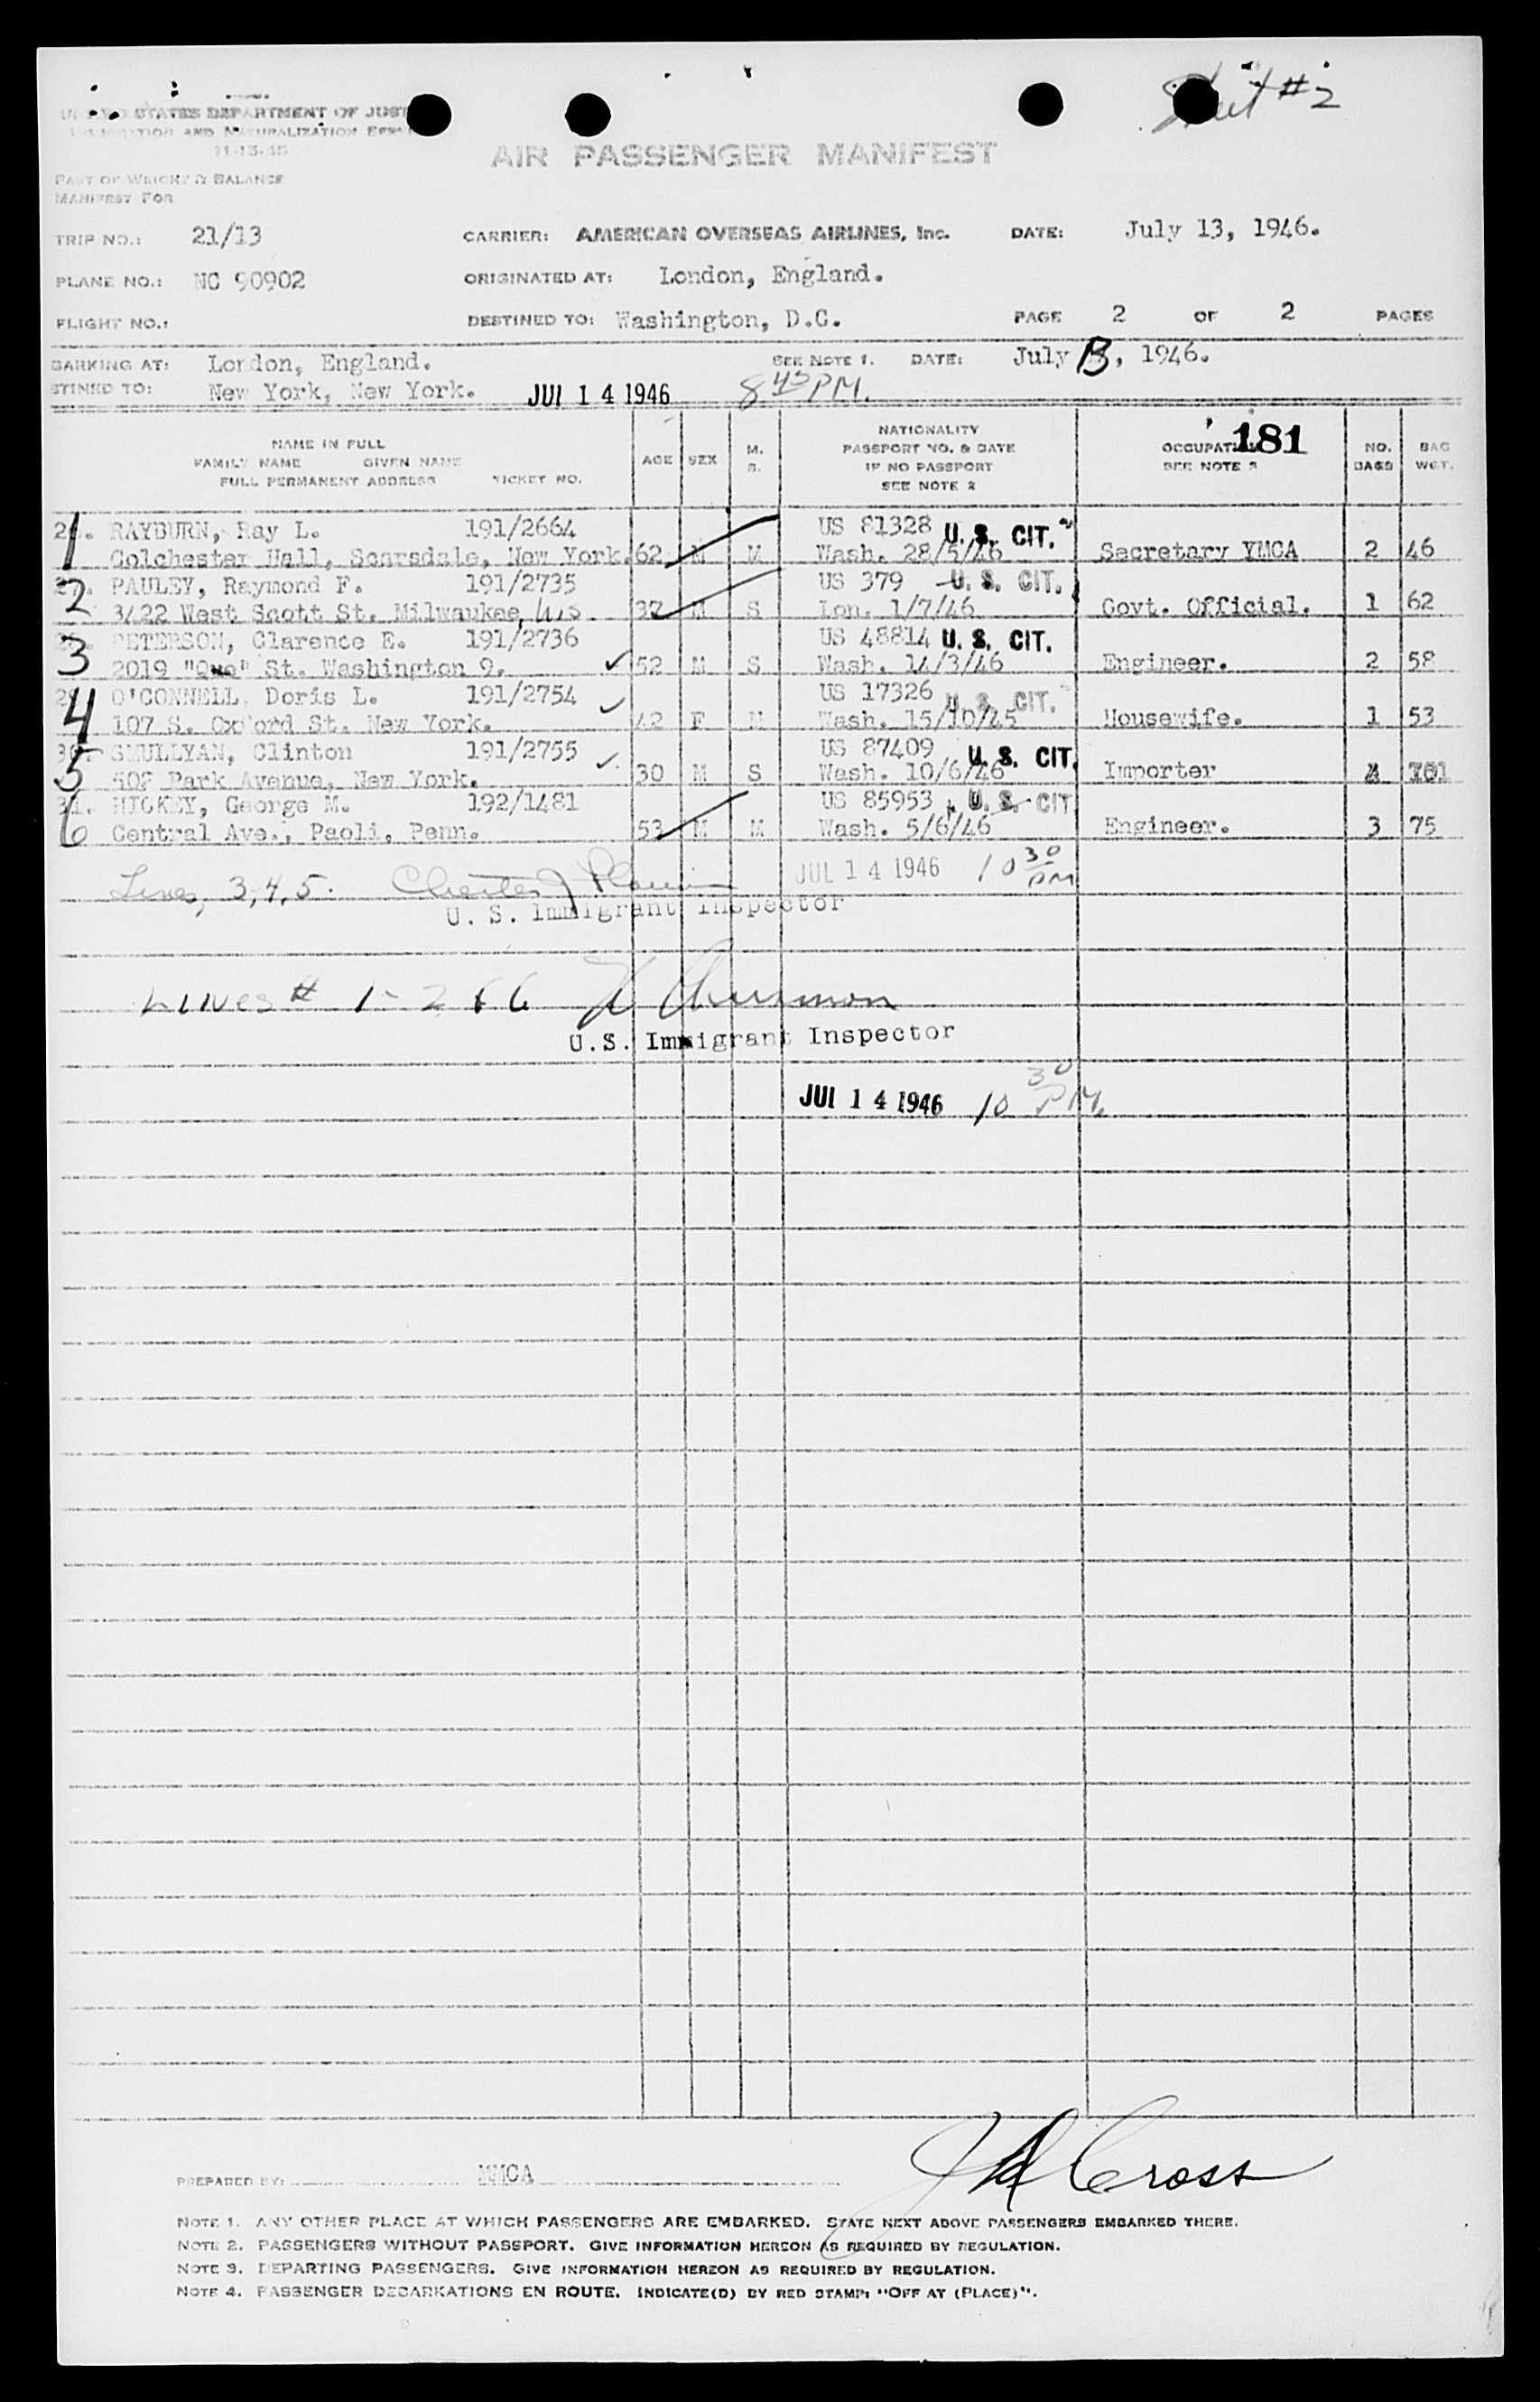 Sheet #2
UNITED STATES DEPARTMENT OF JUST
IMMIGRATION AND NATURALIZATION SERV
11-15-45
AIR PASSENGER MANIFEST
PART OF WEIGHT & BALANCE
MANIFEST FOR
TRIP NO.: 21/13 CARRIER: AMERICAN OVERSEAS AIRLINES, Inc. DATE: July 13, 1946.
PLANE NO.: NC 90902 ORIGINATED AT: London, England.
FLIGHT NO.: DESTINED TO: Washington, D.C. PAGE 2 OF 2 PAGES
BARKING AT: London, England. SEE NOTE 1. DATE: July 13, 1946.
STINED TO: New York, New York. JUL 14 1946 8 45 PM.
NAME IN FULL
FAMILY NAME GIVEN NAME
FULL PERMANENT ADDRESS TICKET NO. AGE SEX M. S. NATIONALITY PASSPORT NO. & DATE IF NO PASSPORT SEE NOTE 2 OCCUPATI 181 SEE NOTE 3 NO. BAGS BAG WGT.
1 RAYBURN, Ray L. 191/2664 US 81328 U. S. CIT.
Colchester Hall, Scarsdale, New York. 62 M M Wash. 28/5/46 Secretary YMCA 2 46
2 PAULEY, Raymond F. 191/2735 US 379 U. S. CIT.
3422 West Scott St. Milwaukee, WIS 37 M S Lon. 1/7/46 Govt. Official. 1 62
3 PETERSON, Clarence E. 191/2736 US 48814 U. S. CIT.
2019 "Que" St. Washington 9. 52 M S Wash. 14/3/46 Engineer. 2 58
4 O'CONNELL, Doris L. 191/2754 US 17326 U. S. CIT.
107 S. Oxford St. New York. 42 F M Wash. 15/10/45 Housewife. 1 53
5 SMULLYAN, Clinton 191/2755 US 87409 U. S. CIT.
502 Park Avenue, New York. 30 M S Wash. 10/6/46 Importer
31. HICKEY, George M. 192/1481 US 85953 U. S. CIT
6 Central Ave., Paoli, Penn. 53 M M Wash. 5/6/46 Engineer. 3 75
Lines, 3,4,5. JUL 14 1946 10 30 PM
U. S. Immigrant Inspector
LINES # 1- 2 & 6
U.S. Immigrant Inspector
JUL 14 1946 10 30 PM.
J Cross
PREPARED BY: MMCA
NOTE 1. ANY OTHER PLACE AT WHICH PASSENGERS ARE EMBARKED. STATE NEXT ABOVE PASSENGERS EMBARKED THERE.
NOTE 2. PASSENGERS WITHOUT PASSPORT. GIVE INFORMATION HEREON AS REQUIRED BY REGULATION.
NOTE 3. DEPARTING PASSENGERS. GIVE INFORMATION HEREON AS REQUIRED BY REGULATION.
NOTE 4. PASSENGER DEBARKATIONS EN ROUTE. INDICATE(D) BY RED STAMP: "OFF AT (PLACE)".